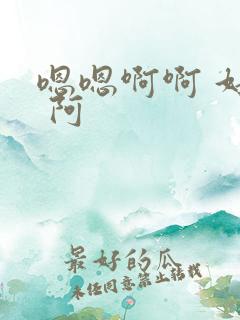 嗯嗯啊啊
啊
最好的瓜
未经同意禁止转载